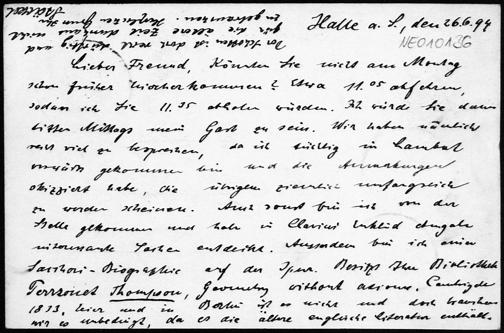 Halle a. S., den 26.6.99
NE010136
Lieber Freund, Könnten Sie nicht am Montag
schon früher hierherkommen? Etwa 11.05 abfahren,
sodass ich Sie 11.35 abholen würde. Ich würde Sie dann
bitten Mittags mein Gast zu sein. Wir haben nämlich
recht viel zu besprechen, da ich tüchtig in Lambert
vorwärts gekommen bin und die Anmerkungen
skizziert habe, die übrigens ziemlich umfangreich
zu werden scheinen. Auch sonst bin ich von der
Stelle gekommen und habe in Clavius' Euklid Ausgabe
interessante Sachen entdeckt. Ausserdem bin ich einer
Saccheri-Biographie auf der Spur. Besitzt Ihre Bibliothek
Perronet Thompson, Geometry without axioms, Cambridge
1833, hier und in Berlin ist es nicht und doch brauchen
wir es unbedingt, da es die ältere englische Literatur enthält.